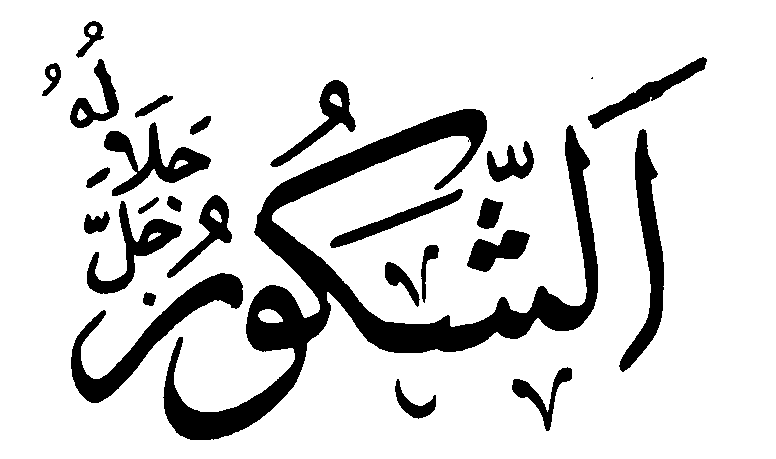 اَلشَّكُورُ
جَلَّ جَلَالُهُ